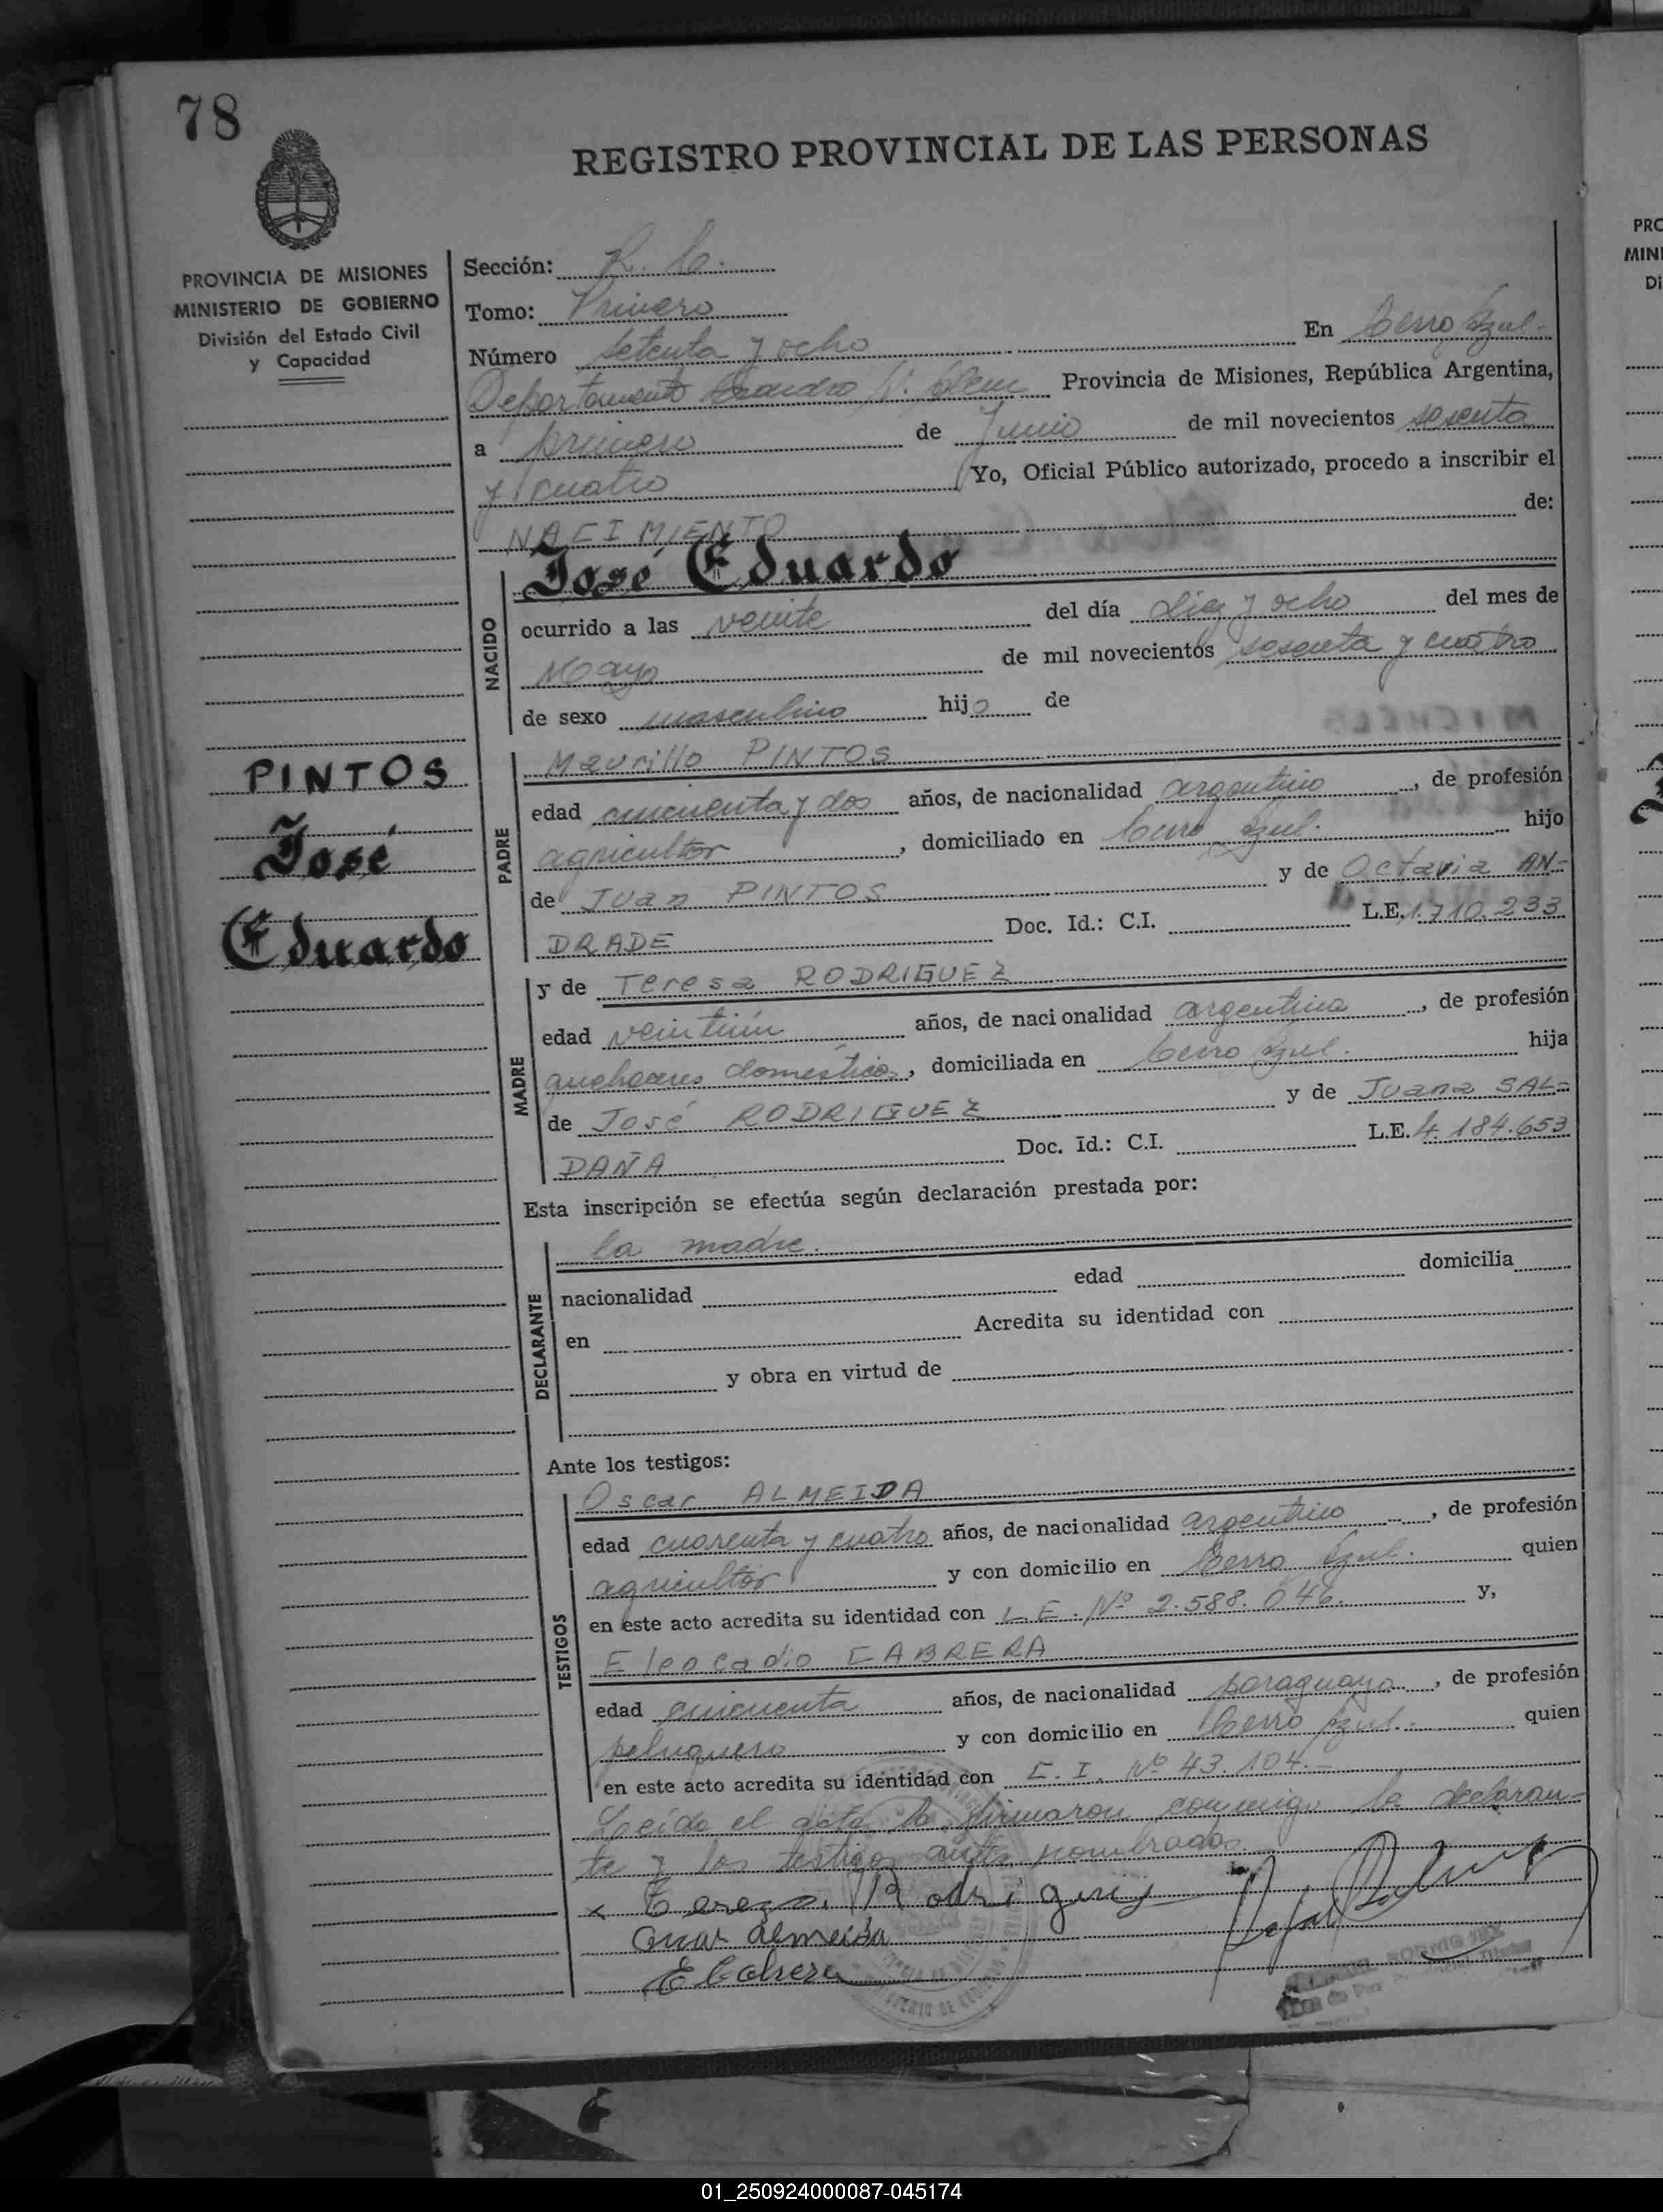 78
REGISTRO PROVINCIAL DE LAS PERSONAS
PROVINCIA DE MISIONES
MINISTERIO DE GOBIERNO
División del Estado Civil
y Capacidad
Sección: R. C.
Tomo: Primero
Número setenta y ocho En Cerro Azul.
Departamento Leandro N. Alem Provincia de Misiones, República Argentina,
a primero de Junio de mil novecientos sesenta
y cuatro Yo, Oficial Público autorizado, procedo a inscribir el
NACIMIENTO de:
NACIDO
José Eduardo
ocurrido a las veinte del día diez y ocho del mes de
Mayo de mil novecientos sesenta y cuatro
de sexo masculino hijo de
PINTOS
José
Eduardo
PADRE
Maurillo PINTOS
edad cincuenta y dos años, de nacionalidad argentino, de profesión
agricultor, domiciliado en Cerro Azul. hijo
de Juan PINTOS y de Octavia AN-
DRADE Doc. Id.: C.I. L.E. 1.710.233
MADRE
y de Teresa RODRIGUEZ
edad veintiún años, de nacionalidad argentina, de profesión
quehaceres domésticos, domiciliada en Cerro Azul. hija
de José RODRIGUEZ y de Juana SAL-
DAÑA Doc. Id.: C.I. L.E. 4.184.653
Esta inscripción se efectúa según declaración prestada por:
DECLARANTE
la madre.
nacionalidad edad domicilia
en Acredita su identidad con
y obra en virtud de
Ante los testigos:
TESTIGOS
Oscar ALMEIDA
edad cuarenta y cuatro años, de nacionalidad argentino, de profesión
agricultor y con domicilio en Cerro Azul. quien
en este acto acredita su identidad con L.E. Nº 2.588.046. y,
Eleocadio CABRERA
edad cincuenta años, de nacionalidad paraguayo, de profesión
peluquero y con domicilio en Cerro Azul. quien
en este acto acredita su identidad con C.I. Nº 43.104.-
Leída el acta la firmaron conmigo la declaran-
te y los testigos antes nombrados.
x Tereza Rodriguez
Oscar Almeida
E Cabrera
PRO
MINI
Di
01_250924000087-045174